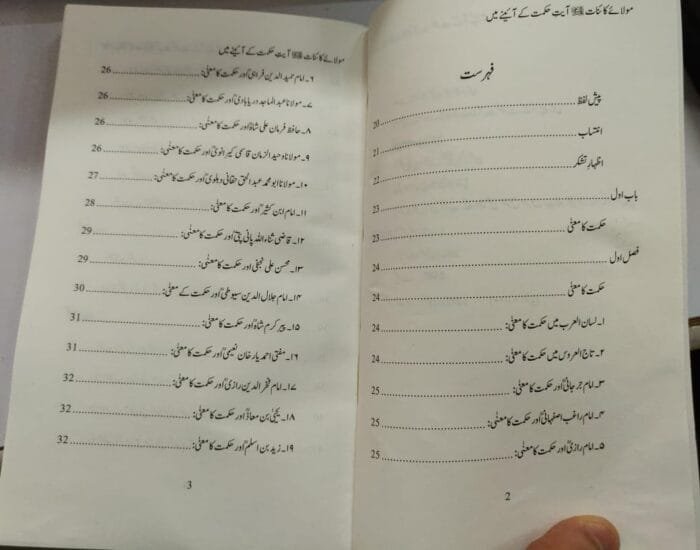 مولائے کائنات ﷺ آیتِ حکمت کے آئینے میں
فہرست
پیش لفظ ........ 20
انتساب ........ 21
اظہارِ تشکر ........ 22
باب اول ........ 23
حکمت کا معنیٰ ........ 23
فصل اول ........ 24
حکمت کا معنیٰ ........ 24
۱۔ لسان العرب میں حکمت کا معنیٰ: ........ 24
۲۔ تاج العروس میں حکمت کا معنیٰ: ........ 24
۳۔ امام جرجانیؒ اور حکمت کا معنیٰ: ........ 25
۴۔ امام راغب اصفہانیؒ اور حکمت کا معنیٰ: ........ 25
۵۔ امام رازیؒ اور حکمت کا معنیٰ: ........ 25
2
مولائے کائنات ﷺ آیتِ حکمت کے آئینے میں
۶۔ امام حمید الدین فراہیؒ اور حکمت کا معنیٰ: ........ 26
۷۔ مولانا عبد الماجد دریابادیؒ اور حکمت کا معنیٰ: ........ 26
۸۔ حافظ فرمان علی شاہؒ اور حکمت کا معنیٰ: ........ 26
۹۔ مولانا وحید الزمان قاسمی کیرانویؒ اور حکمت کا معنیٰ: ........ 26
۱۰۔ مولانا ابو محمد عبد الحق حقانی دہلویؒ اور حکمت کا معنیٰ: ........ 27
۱۱۔ امام ابن کثیرؒ اور حکمت کا معنیٰ: ........ 28
۱۲۔ قاضی ثناء اللہ پانی پتیؒ اور حکمت کا معنیٰ: ........ 29
۱۳۔ محسن علی نجفی اور حکمت کا معنیٰ: ........ 29
۱۴۔ امام جلال الدین سیوطیؒ اور حکمت کے معنیٰ: ........ 30
۱۵۔ پیر کرم شاہؒ اور حکمت کا معنیٰ: ........ 31
۱۶۔ مفتی احمد یار خان نعیمیؒ اور حکمت کا معنیٰ: ........ 31
۱۷۔ امام فخر الدین رازیؒ اور حکمت کا معنیٰ: ........ 32
۱۸۔ یحییٰ بن معاذؒ اور حکمت کا معنیٰ: ........ 32
۱۹۔ زید بن اسلمؓ اور حکمت کا معنیٰ: ........ 32
3